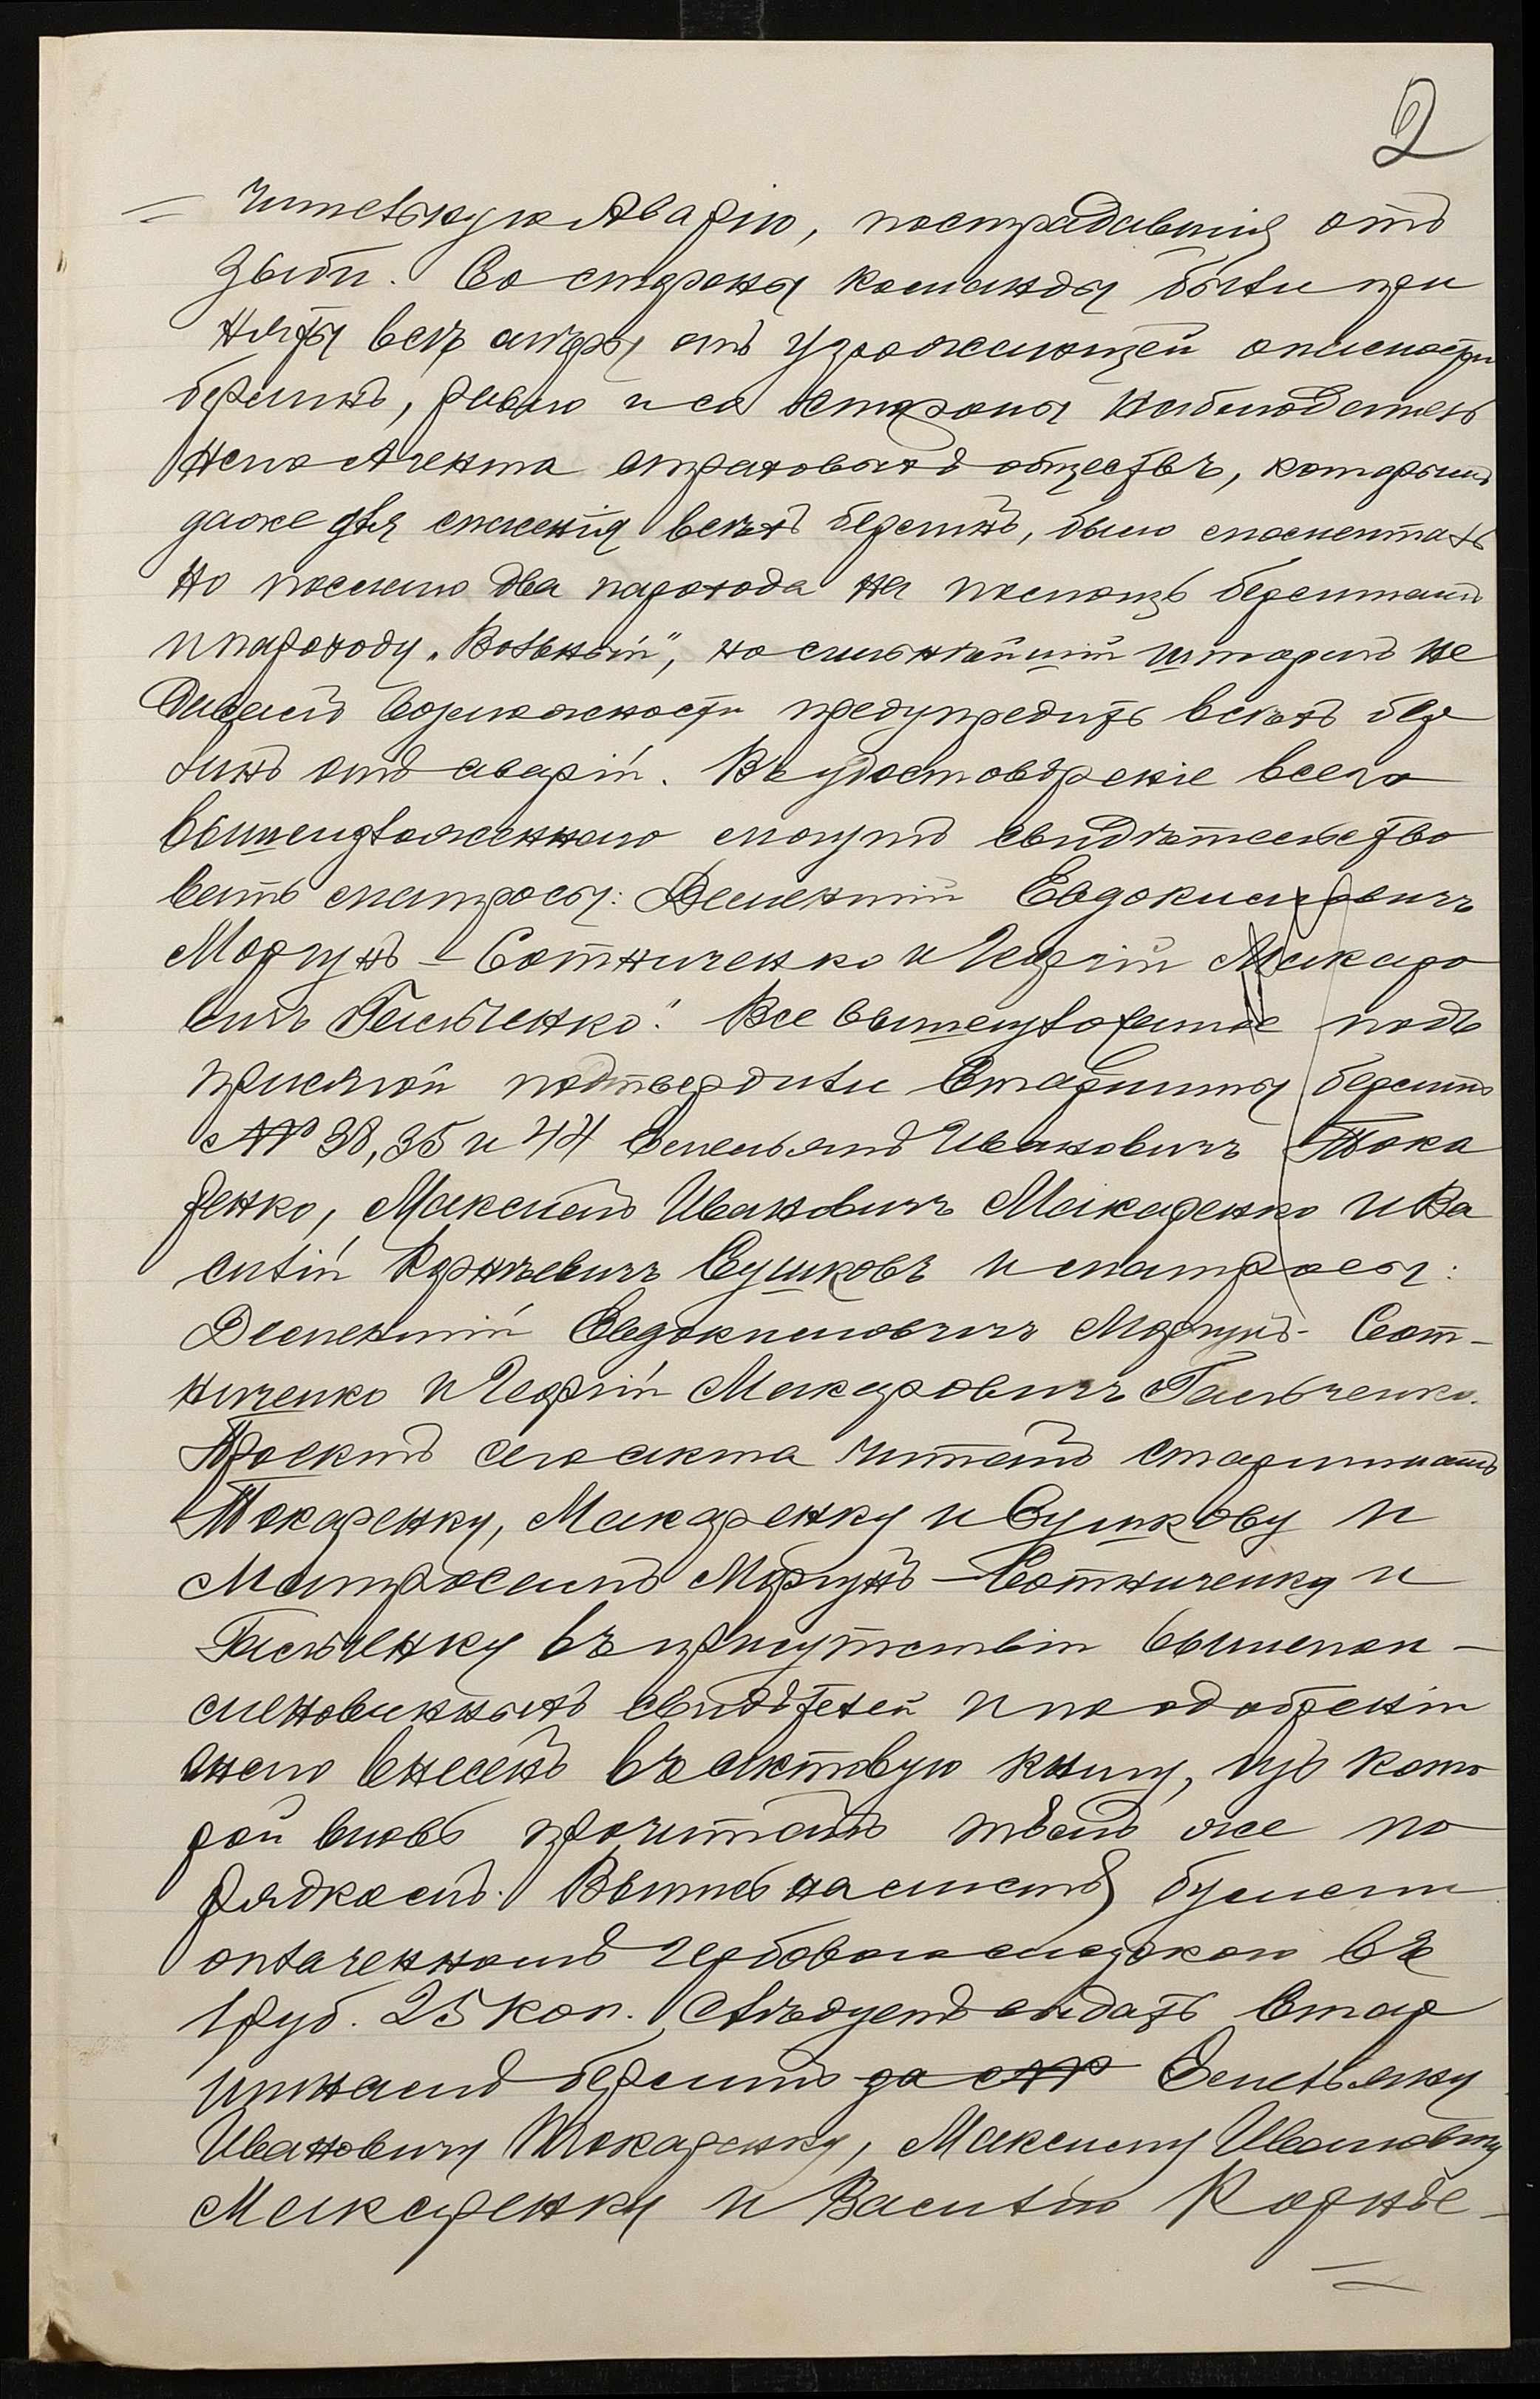 2
чительную Аварію, пострадавшія отъ
зыби. Со стороны команды были при
няты всѣ мѣры отъ угрожающей опасности
баржамъ, равно и со стороны наблюдатель
наго Агента страховыхъ обществъ, которымъ
даже для спасенія всѣхъ баржъ, было моменталь
но послано два парохода на помощь баржамъ
и пароходу „Вольный", но сильнѣйшій штормъ не
давалъ возможности предупредить всѣхъ бар
жъ отъ аваріи. Въ удостовѣреніе всего
вышеизложеннаго могутъ свидѣтельство
вать матросы: Дементій Евдокимовичъ
Моргунъ - Сотниченко и Георгій Макаро
вичъ Гальченко. Все вышеизложенное подъ
присягой подтвердили Старшины баржъ
№№ 38, 35 и 44 Емельянъ Ивановичъ Тока
ренко, Максимъ Ивановичъ Макаренко и Ва
силій Корнѣевичъ Сушковъ и матросы:
Дементій Евдокимовичъ Моргунъ - Сот-
ниченко и Георгій Макаровичъ Гальченко.
Проектъ сего акта читанъ старшинамъ
Токаренку, Макаренку и Сушкову и
Матросамъ Моргунъ - Сотниченку и
Гальченку въ присутствіи вышепои-
менованныхъ свидѣтелей и по одобреніи
онаго внесенъ въ актовую книгу, изъ кото
рой вновь прочитанъ тѣмъ же по
рядкомъ. Выпись на листѣ бумаги
оплаченномъ гербовымъ сборомъ въ
1 руб. 25 коп. Слѣдуетъ выдать Стар
шинамъ баржъ за №№ Емельяну
Ивановичу Токаренку, Максиму Ивановичу
Макаренку и Василію Корнѣе-